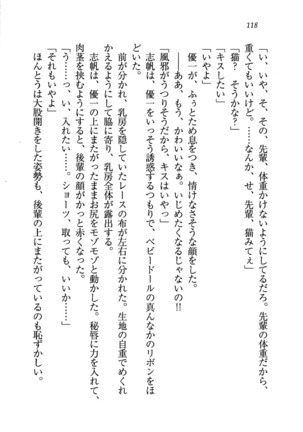 118
「い、いや、その、先輩、体重かけないようにしてるだろ。先輩の体重だから、
重くてもいいけど。……なんか、せ、先輩、猫みてぇ」
「猫？　そうかな？」
「キスしたい」
「いやよ」
「風邪がうつりそうだから、キスはいやっ」
優一が、ふぅとため息をつき、情けなさそうな顔をした。
――ああ、もう、かわいいなぁ。いじめたくなるじゃないの!!
志帆は、優一をいっそう誘惑するつもりで、ベビードールの真んなかのリボンをほ
どいた。
前が分かれ、乳房を隠していたレースの布が左右に分かれた。生地の自重でめくれ
かえるようにして脇に寄り、乳房全体が露出する。
志帆は、優一の上にまたがったままお尻をモゾモゾと動かした。秘唇に力を入れて、
肉茎を挟むようにすると、後輩の顔がかっと赤くなった。
「う……っ、い、入れたい……。ショーツ、取っても、いいか……」
「それもいやよ」
ほんとうは大股開きをした姿勢も、後輩の上にまたがっているのも恥ずかしい。